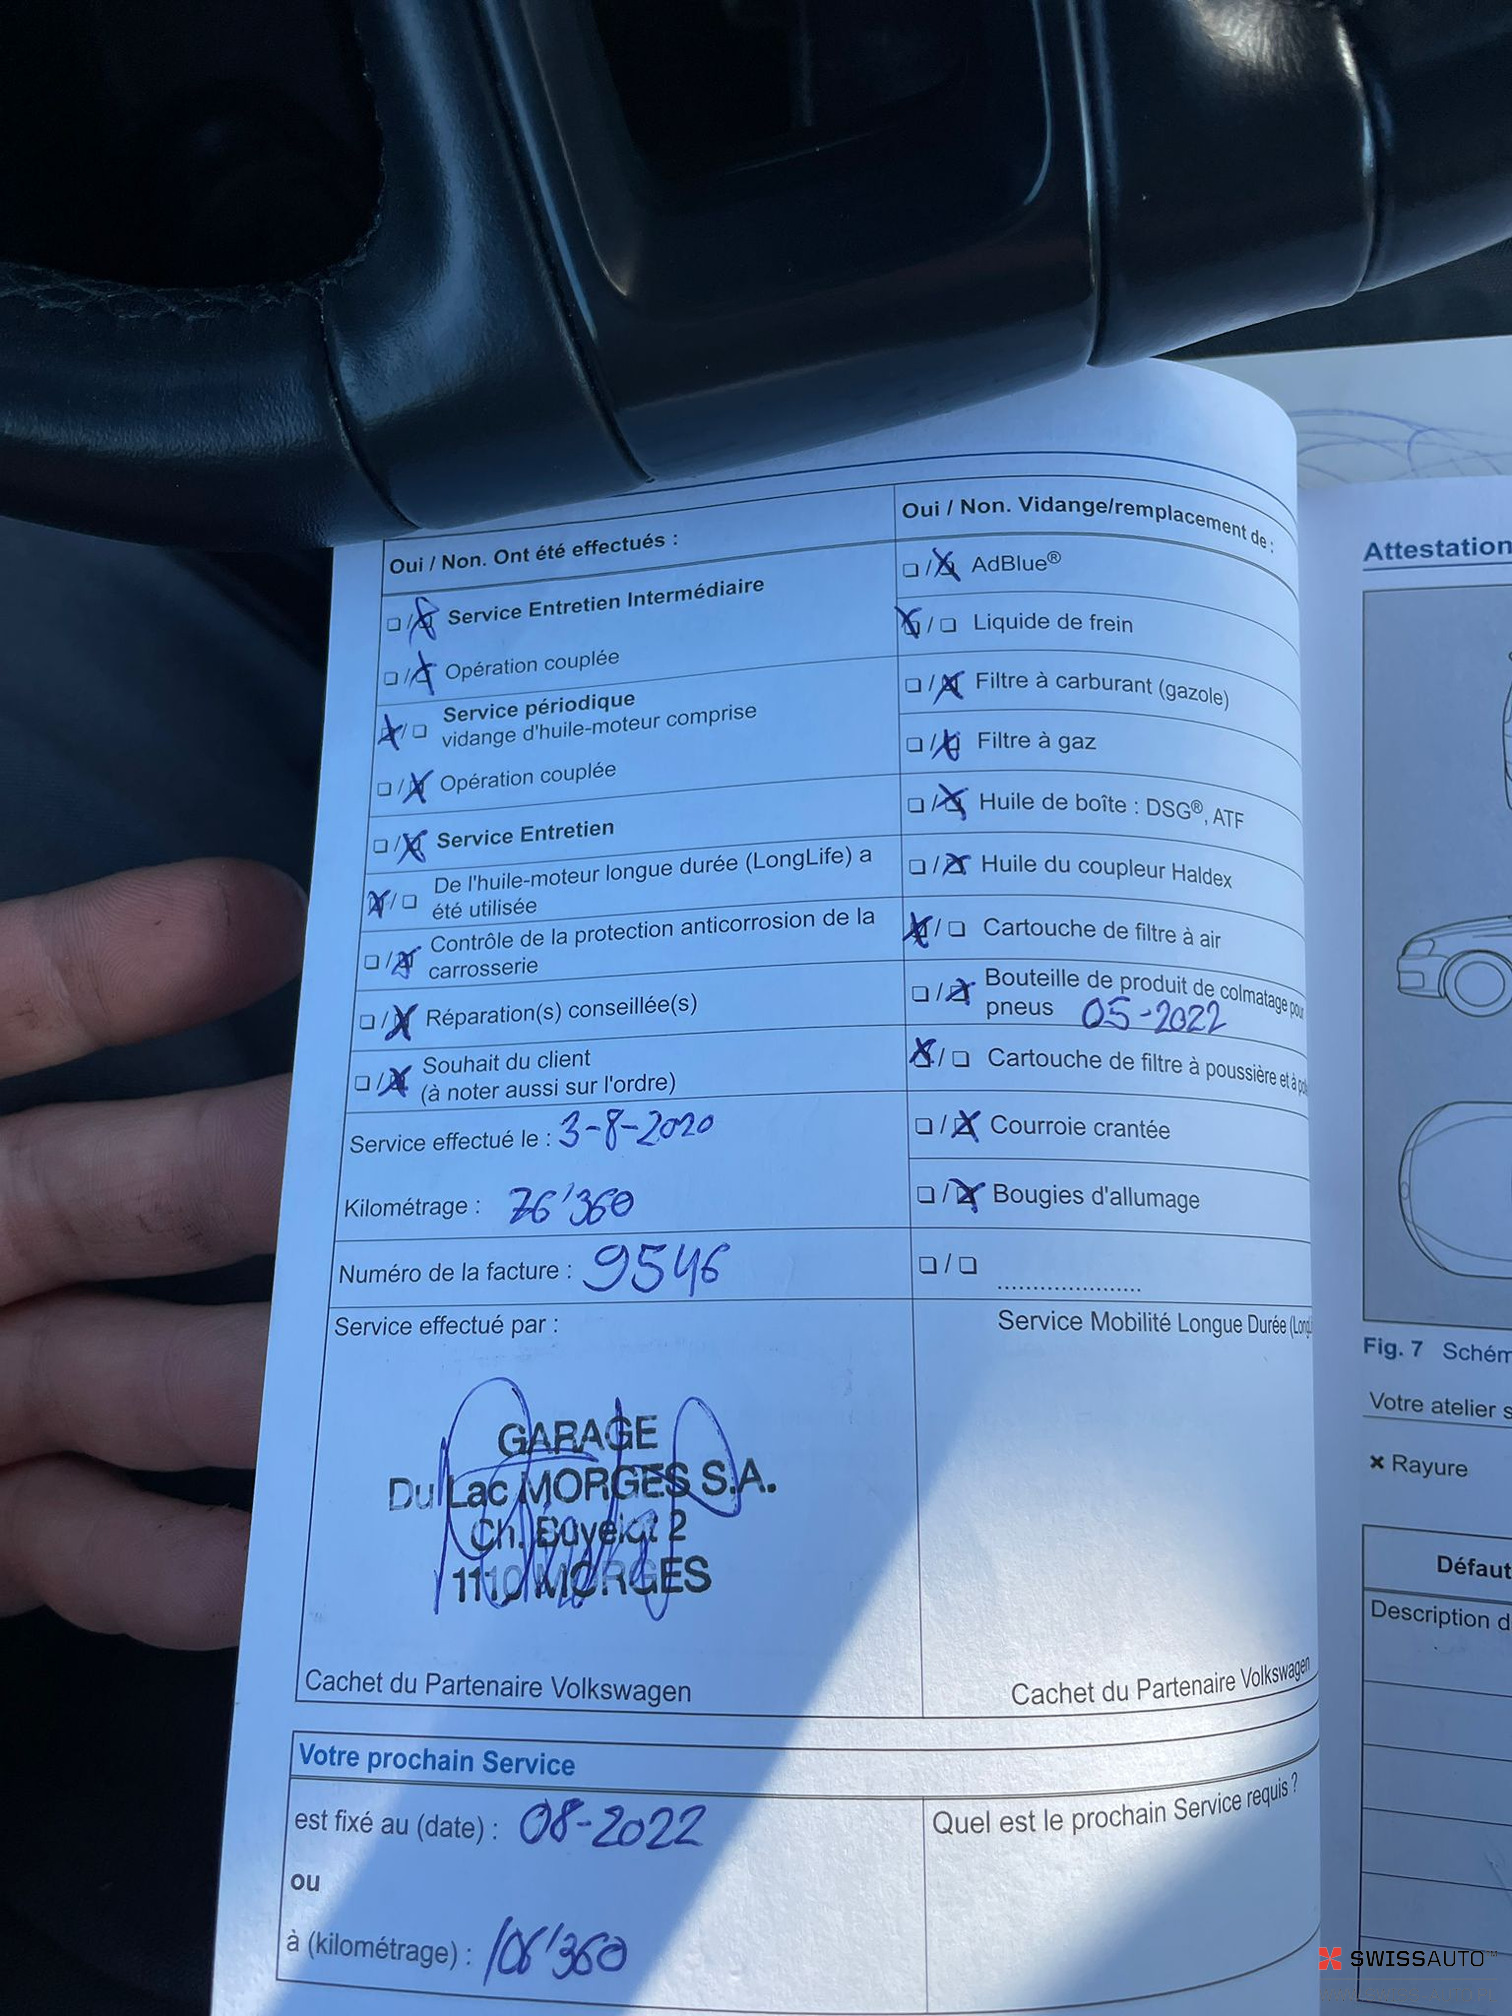 Oui / Non. Ont été effectués :
❏ / ☒ Service Entretien Intermédiaire
❏ / ☒ Opération couplée
☒ / ❏ Service périodique
vidange d'huile-moteur comprise
❏ / ☒ Opération couplée
❏ / ☒ Service Entretien
☒ / ❏ De l'huile-moteur longue durée (LongLife) a
été utilisée
❏ / ☒ Contrôle de la protection anticorrosion de la
carrosserie
❏ / ☒ Réparation(s) conseillée(s)
❏ / ☒ Souhait du client
(à noter aussi sur l'ordre)
Service effectué le : 3-8-2020
Kilométrage : 76'360
Numéro de la facture : 9546
Service effectué par :
GARAGE
Du Lac MORGES S.A.
Ch. 2
1110 MORGES
Cachet du Partenaire Volkswagen
Oui / Non. Vidange/remplacement de :
❏ / ☒ AdBlue®
☒ / ❏ Liquide de frein
❏ / ☒ Filtre à carburant (gazole)
❏ / ☒ Filtre à gaz
❏ / ☒ Huile de boîte : DSG®, ATF
❏ / ☒ Huile du coupleur Haldex
☒ / ❏ Cartouche de filtre à air
❏ / ☒ Bouteille de produit de colmatage pour
pneus 05-2022
☒ / ❏ Cartouche de filtre à poussière et à
❏ / ☒ Courroie crantée
❏ / ☒ Bougies d'allumage
❏ / ❏ ......................
Service Mobilité Longue Durée
Cachet du Partenaire Volkswagen
Votre prochain Service
est fixé au (date) : 08-2022
ou
à (kilométrage) : 106'360
Quel est le prochain Service requis ?
Attestation
Fig. 7 Schém
Votre atelier s
× Rayure
Défaut
Description d
SWISSAUTO™